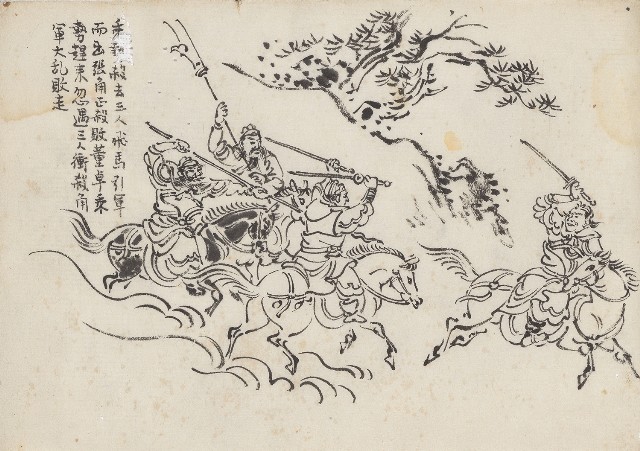 殺去三人飛馬引軍
而出張角正殺敗董卓乘
勢趕来忽遇三人衝殺角
軍大乱敗走